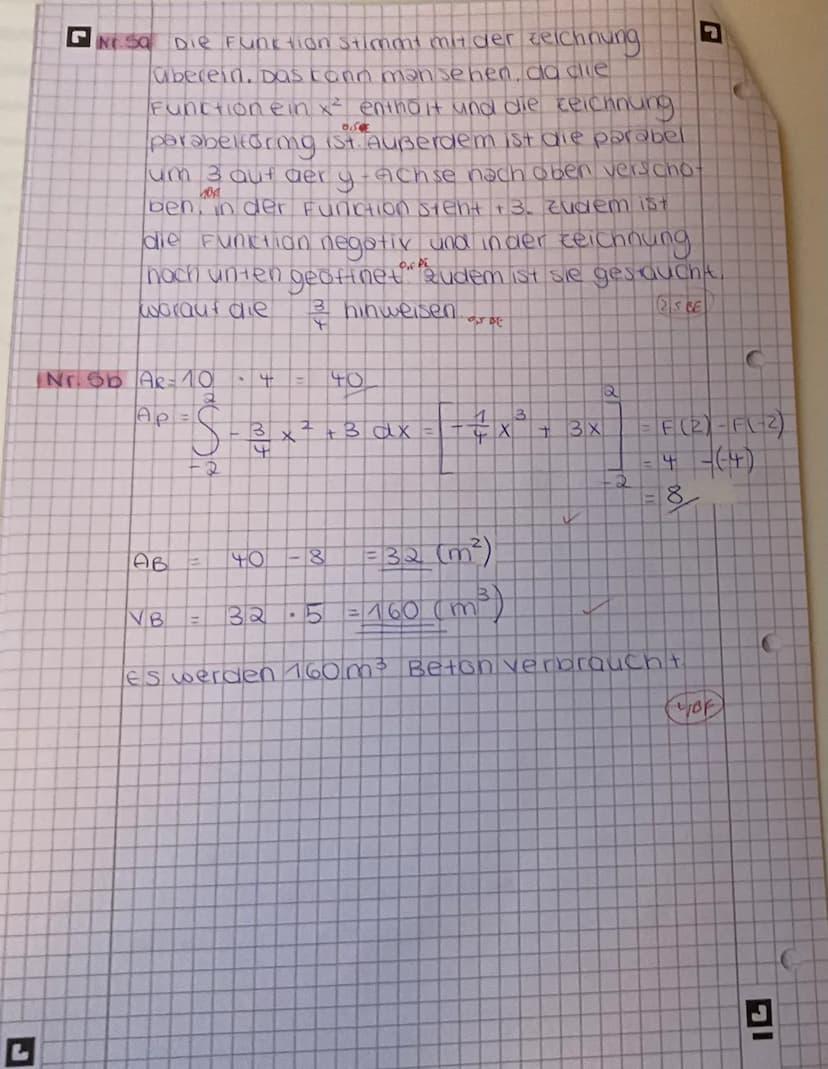 Nr. 5a Die Funktion stimmt mit der Zeichnung
überein. Das kann man sehen, da die
Function ein x² enthält und die Zeichnung
parabelförmig ist. Außerdem ist die Parabel
um 3 auf der y-Achse nach oben verscho-
ben, in der Function steht +3. Zudem ist
die Funktion negativ und in der Zeichnung
nach unten geöffnet. Zudem ist sie gestaucht,
worauf die 3/4 hinweisen. 0,5 BE
2,5 BE
Nr. 5b AR = 10 · 4 = 40
AP = ∫₋₂² - 3/4 x² + 3 dx = [- 1/4 x³ + 3x]₋₂² = F(2) - F(-2)
= 4 -(-4)
= 8
AB = 40 - 8 = 32 (m²)
VB = 32 · 5 = 160 (m³)
Es werden 160 m³ Beton verbraucht.
4 BE